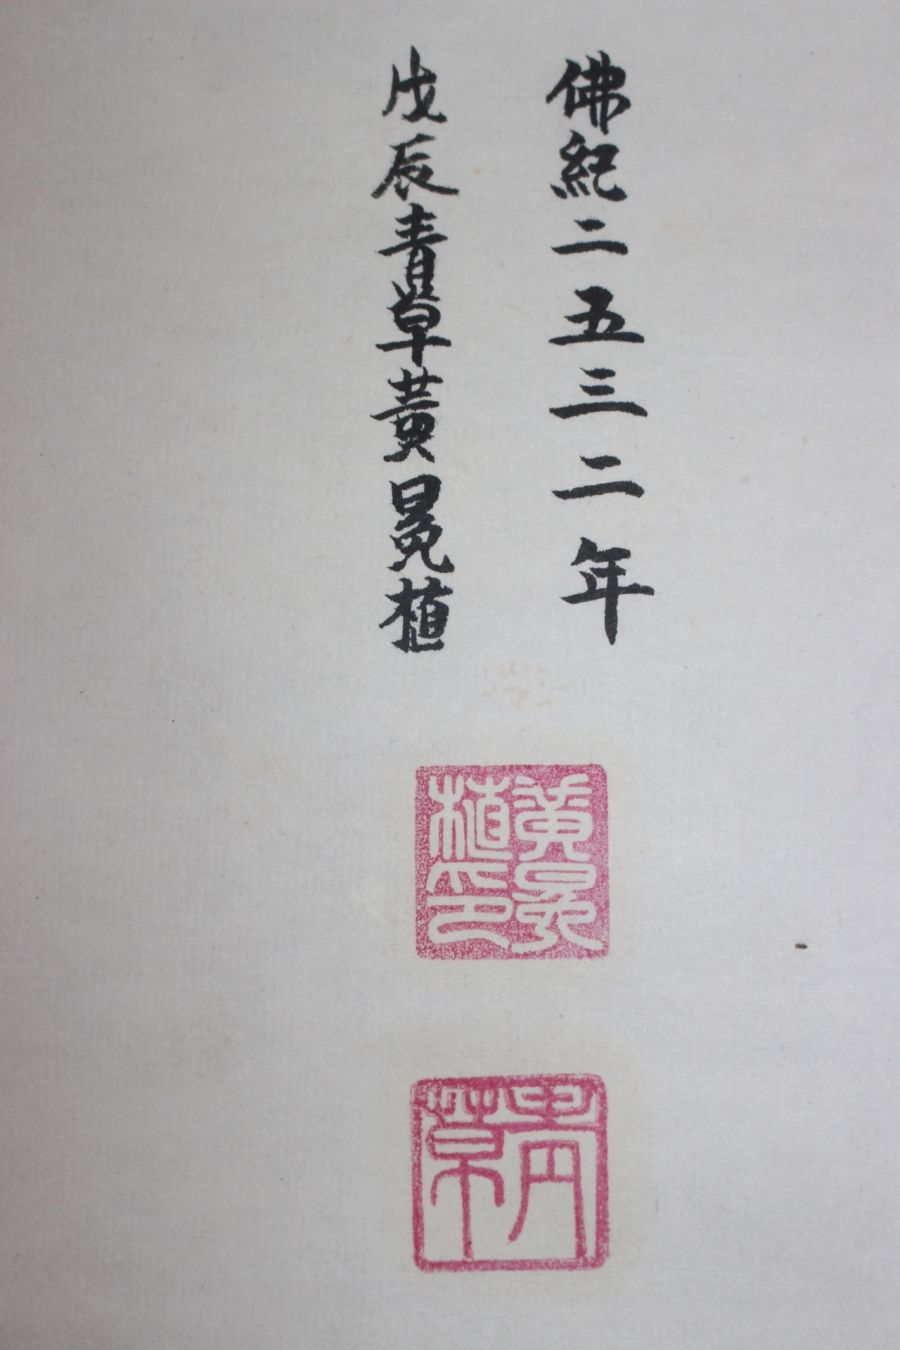 佛紀二五三二年
戊辰青草黃冕植
黃冕植印
青草